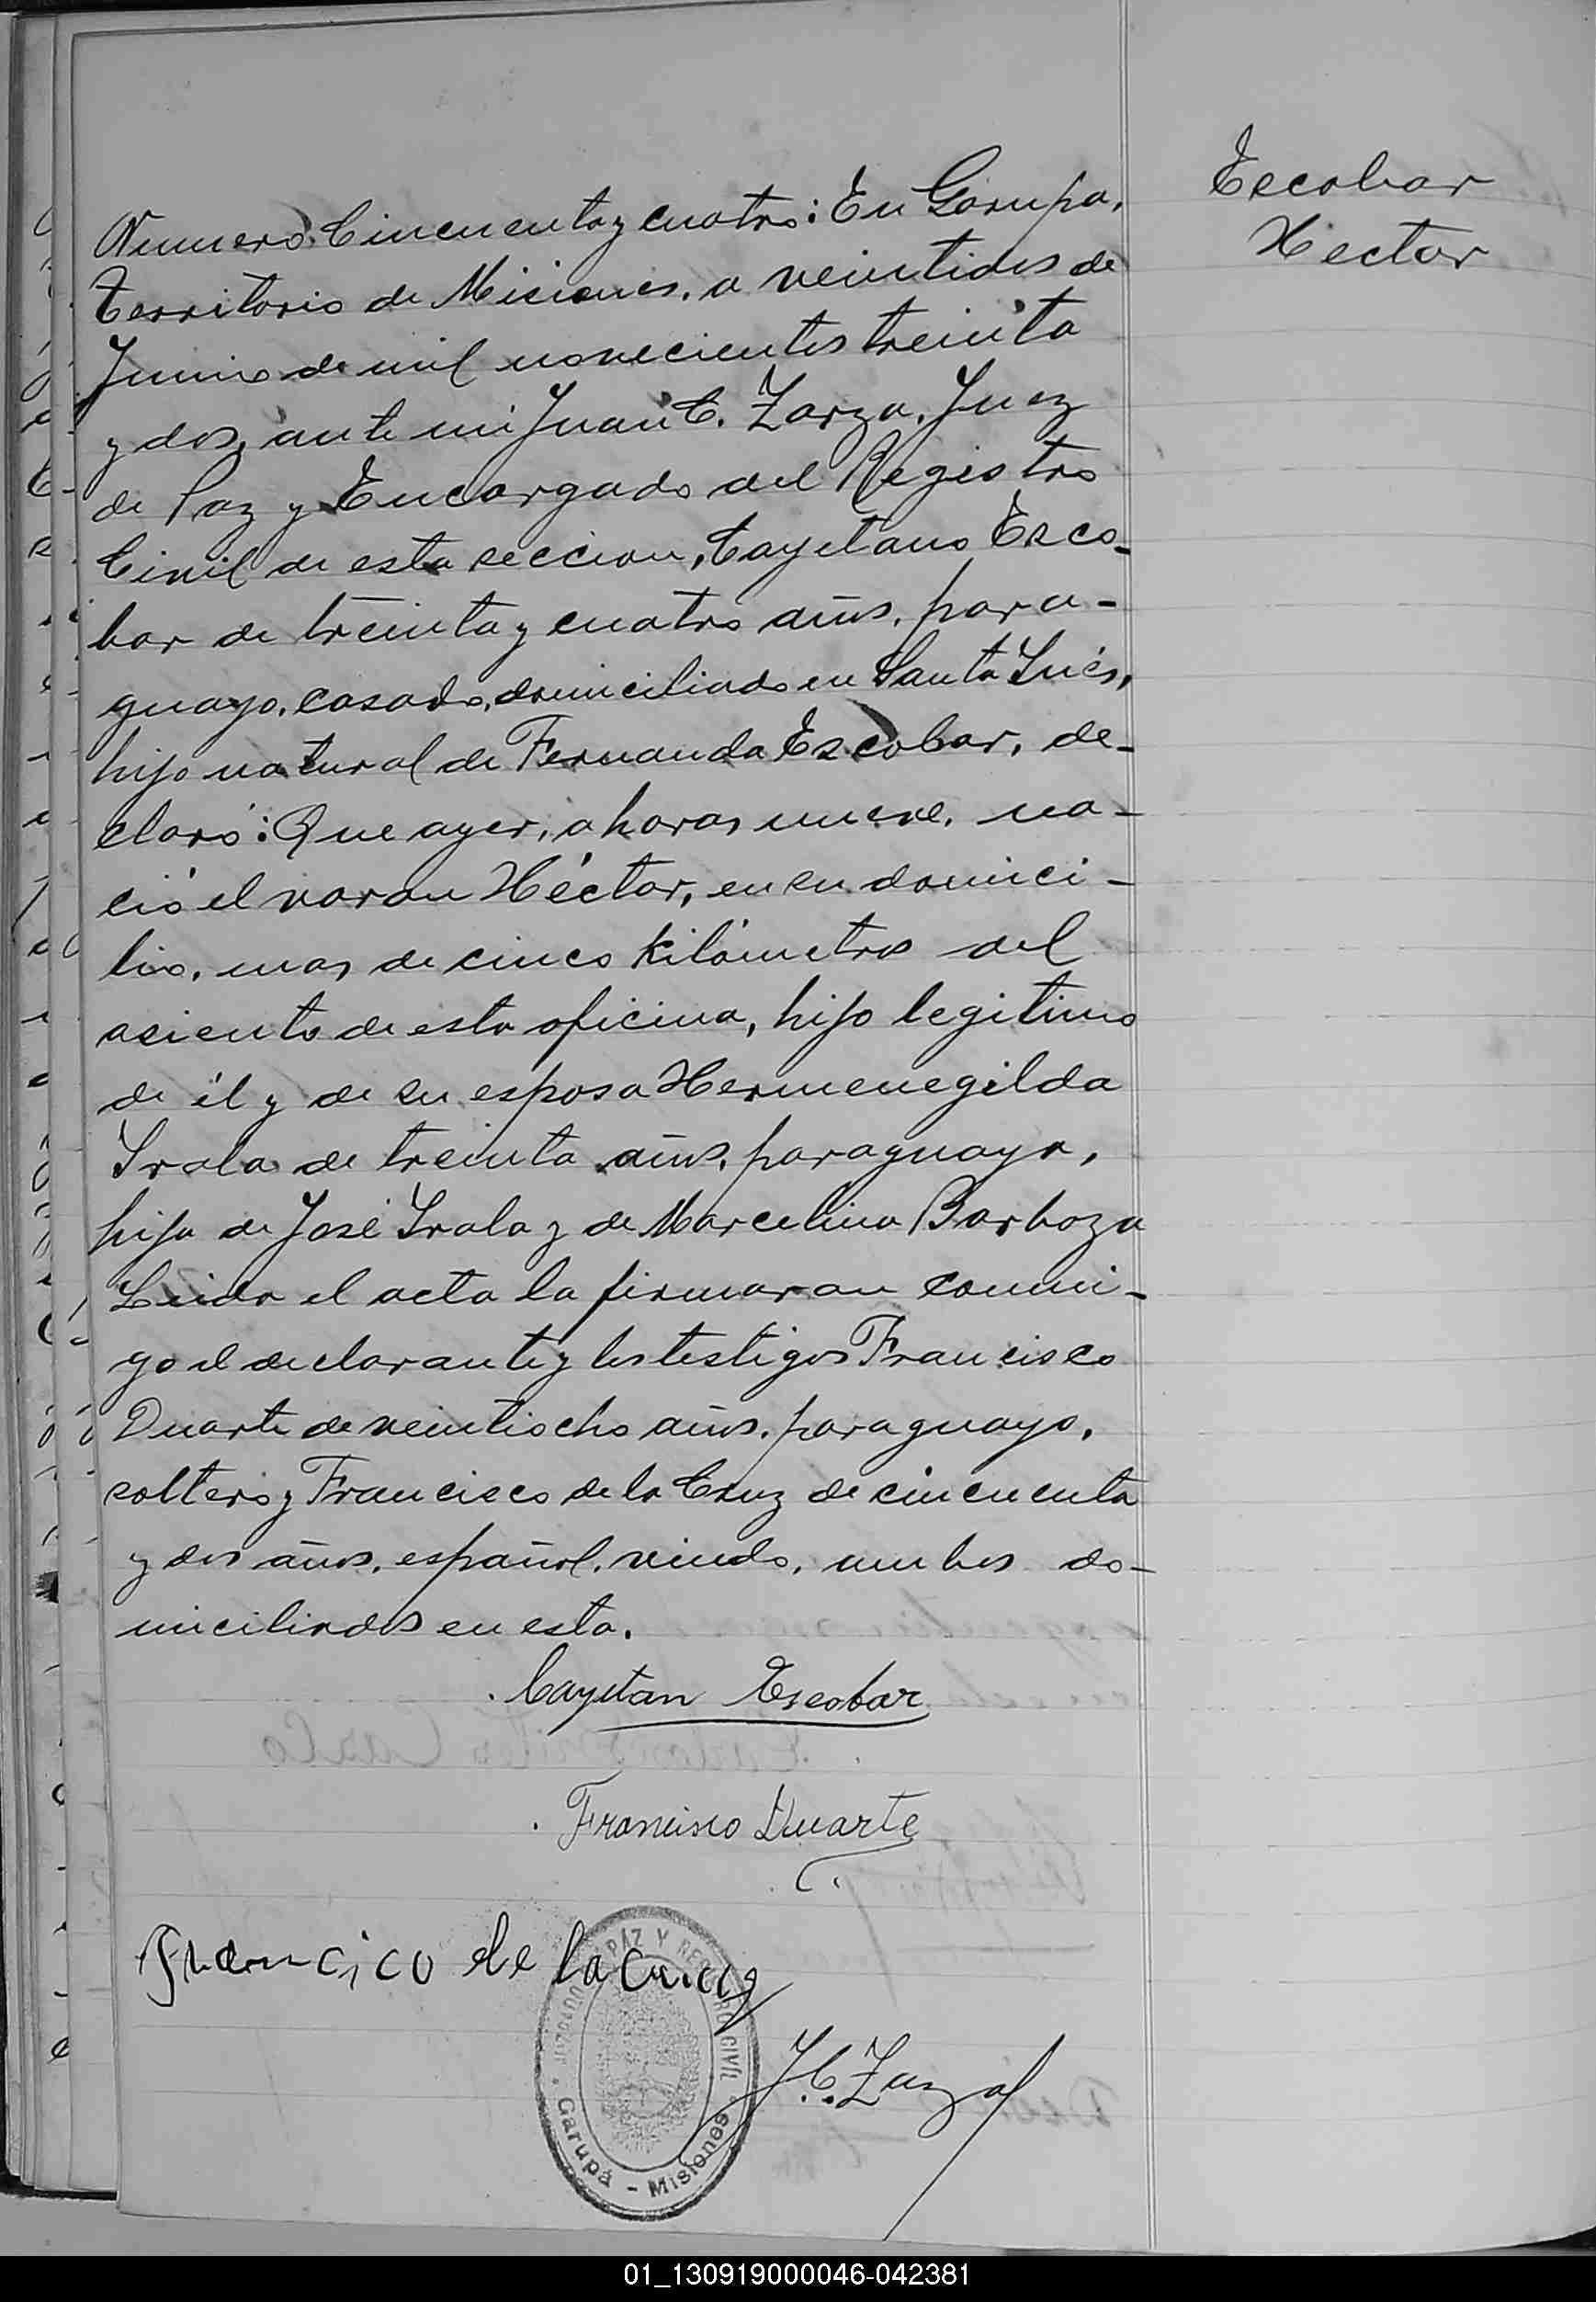 Escobar
Hector
Numero Cincuenta y cuatro: En Garupa,
Territorio de Misiones, a veintidos de
Junio de mil novecientos treinta
y dos, ante mi Juan C. Zarza, Juez
de Paz y Encargado del Registro
Civil de esta seccion, Cayetano Esco-
bar de treinta y cuatro años, para-
guayo, casado, domiciliado en Santa Inés,
hijo natural de Fernanda Escobar, de-
claró: Que ayer, a horas nueve, na-
ció el varon Héctor, en su domici-
lio, mas de cinco kilómetros del
asiento de esta oficina, hijo legitimo
de él y de su esposa Hermenegilda
Irala de treinta años, paraguaya,
hija de José Irala y de Marcelina Barboza
Leida el acta la firmaron conmi-
go el declarante y los testigos Francisco
Duarte de veintiocho años, paraguayo,
soltero y Francisco de la Cruz de cincuenta
y dos años, español, viudo, ambos do-
miciliados en esta.
Cayetan Escobar
Francisco Duarte
Francico de la Cruz
J. C. Zarza
JUZGADO DE PAZ Y REGISTRO CIVIL
Garupá - Misiones
01_130919000046-042381